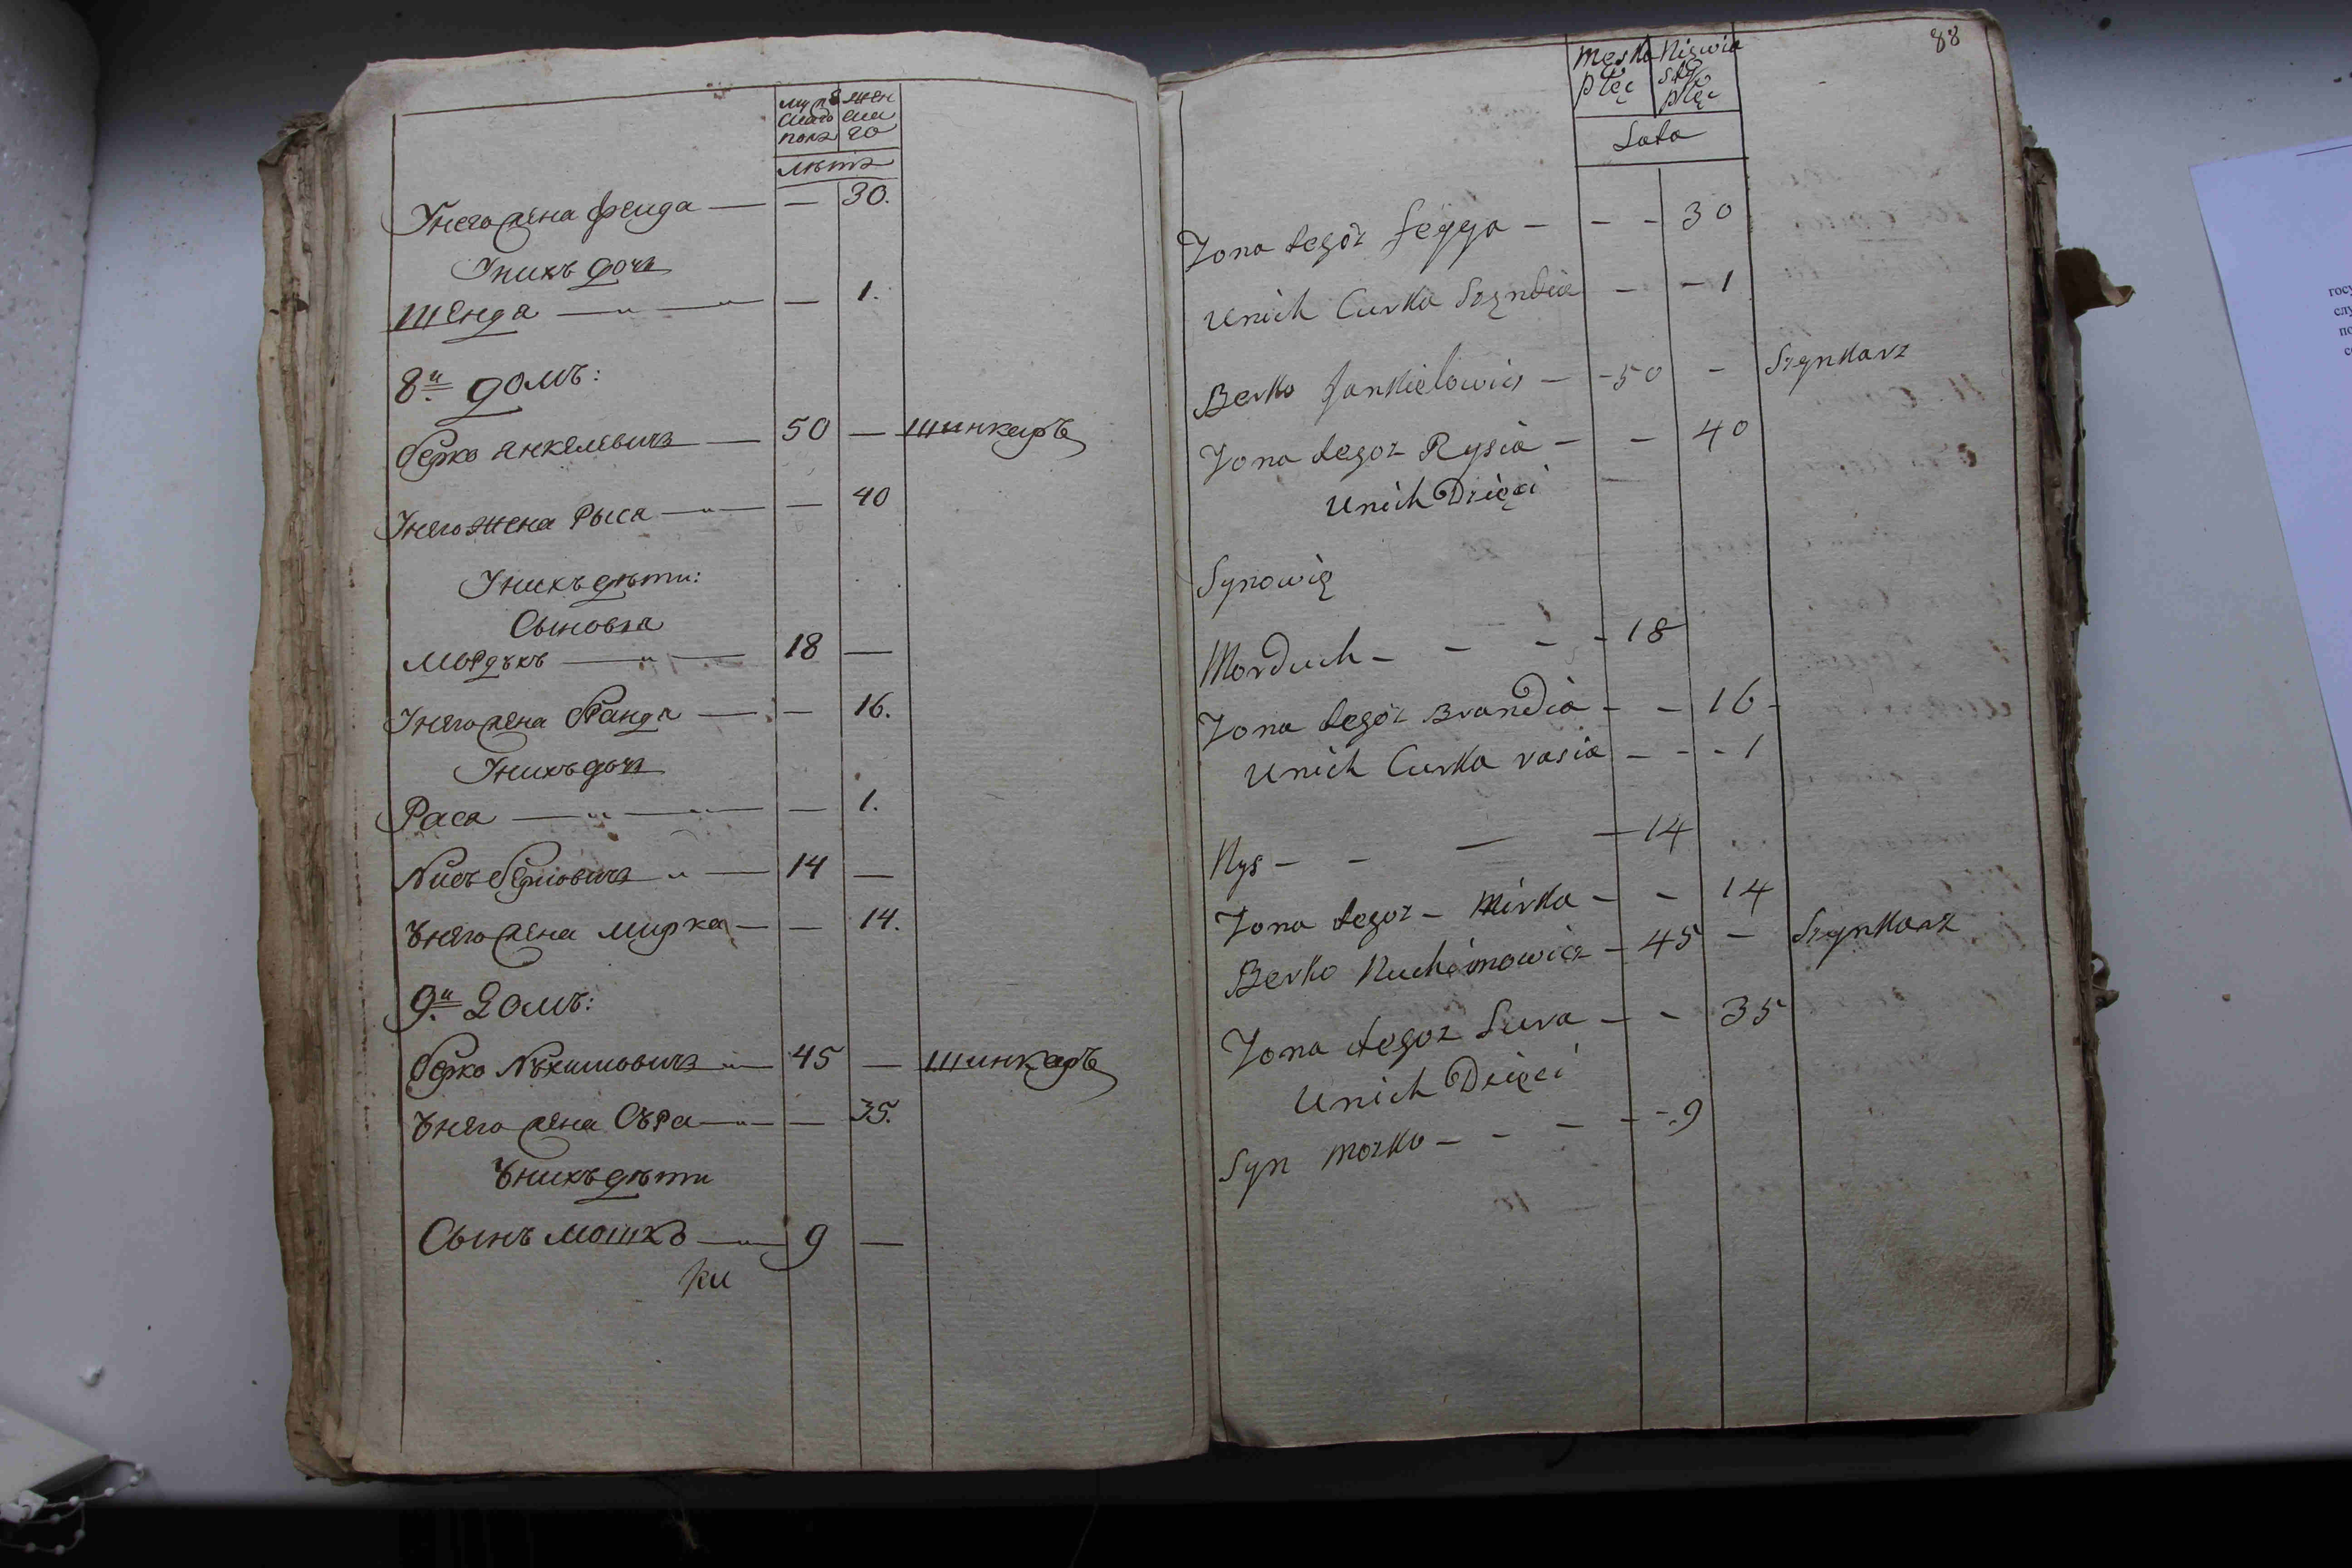 мужескаго полѫ женскаго
лѣтъ
Унего жена фейда — — 30.
Унихъ дочь
Шенда — — 1.
8й домъ:
берко анкелевичъ — 50 — шинкаръ
Унего жена Рыса — — 40
Унихъ дѣти:
Сыновья
Мордухъ — 18 —
Унего жена бранда — — 16.
Унихъ дочь
Раса — — 1.
Нисъ берковичъ — 14 —
Унего жена мирка — — 14.
9й Домъ:
берко Нухимовичъ — 45 — шинкаръ
Унего жена Сура — — 35.
Унихъ дѣти
Сынъ мошко — 9 —
88
Męska płeć Niewia ska płeć
Lata
Zona tegoż feyga — - - 30
Unich Curka Szęndia — - 1
Berko Jankielowicz — - 50 - Szynkarz
Zona tegoz Rysia — - 40
Unich Dzięci
Synowię
Morduch - - - - 18
Zona tegoż Brandia - - 16 -
Unich Curka rasia - - - 1
Nys - - — - 14
Zona tegoz - Mirka - - 14
Berko Nuchimowicz - 45 - Szynkarz
Zona tegoz Sura - - 35
Unich Dzięci
Syn Moszko - - - - - 9